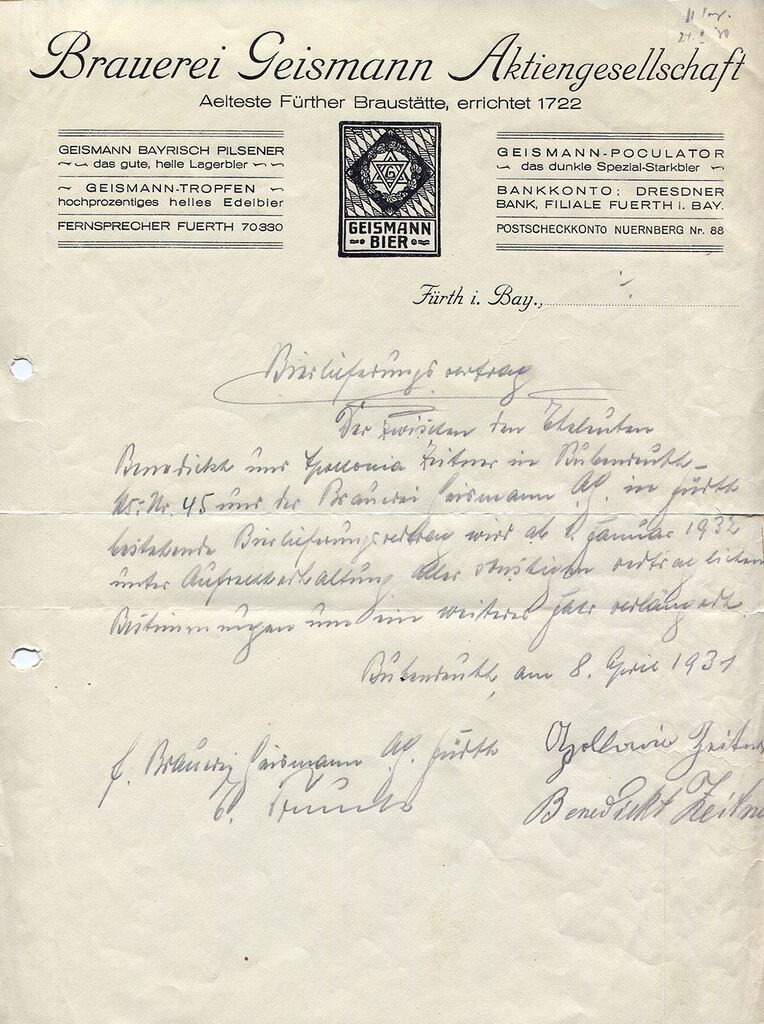 Brauerei Geismann Aktiengesellschaft
Aelteste Fürther Braustätte, errichtet 1722
GEISMANN BAYRISCH PILSENER
das gute, helle Lagerbier
GEISMANN-TROPFEN
hochprozentiges helles Edelbier
FERNSPRECHER FUERTH 70330
G
GEISMANN
BIER
GEISMANN-POCULATOR
das dunkle Spezial-Starkbier
BANKKONTO: DRESDNER
BANK, FILIALE FUERTH i. BAY.
POSTSCHECKKONTO NUERNBERG Nr. 88
Fürth i. Bay.,
Bierlieferungsvertrag
Der zwischen den Eheleuten
Benedickt und Apollonia Zeitner in Bubenreuth
Hs.-Nr. 45 und der Brauerei Geismann AG. in Fürth
bestehende Bierlieferungsvertrag wird ab 1. Januar 1932
unter Aufrechterhaltung aller sonstigen vertraglichen
Bestimmungen um ein weiteres Jahr verlängert.
Bubenreuth, am 8. April 1931
f. Brauerei Geismann AG. Fürth
Apollonia Zeitner
Benedickt Zeitner